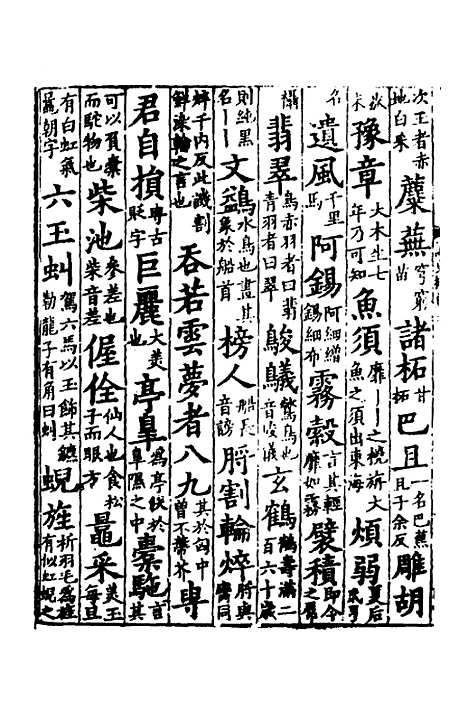 次玉者赤地白朱蘪蕪穹窮苗諸柘甘柘巴且一名巴蕉且子余反雕胡
豫章大木生七年乃可知魚須靡｜｜之橈旃大魚之須出東海煩弱夏后氏弓
名遺風千里馬阿錫阿細繒錫細布霧縠言其輕靡如霧襞積即今之
襵翡翠鳥赤羽者曰翡青羽者曰翠鵔鸃鷩鳥也音峻儀玄鶴鶴壽滿二百六十歲
則純黑名｜｜文鷁水鳥也畫其象於船首榜人船長音謗脟割輪焠脟與臠同
焠千內反此譏割鮮染輪之言也吞若雲夢者八九其於匈中曾不蔕芥甹
君自損甹古貶字巨麗大美也亭皐爲亭候於皐隰之中橐駞言其
可以負橐而駝物也柴池參差也柴音差偓佺仙人也食松子而眼方鼂采美玉每旦
有白虹氣鼂朝字六玉虯駕六馬以玉飾其鑣勒龍子有角曰虯蜺旌析羽毛爲旌有似虹蜺之